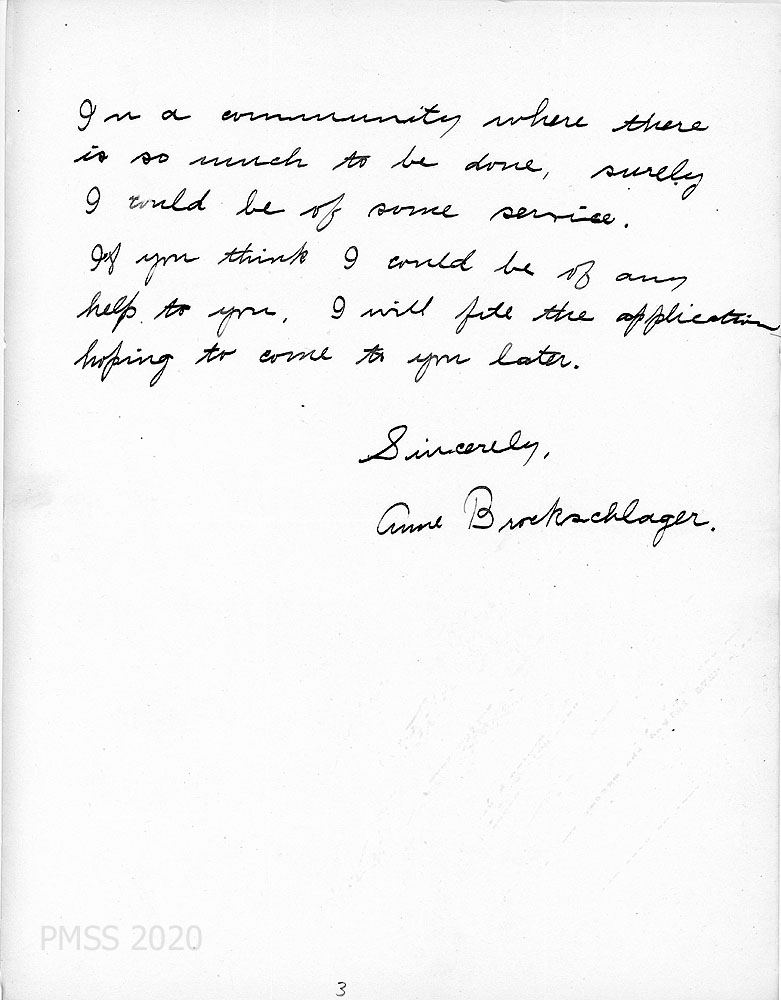 In a community where there
is so much to be done, surely
I could be of some service.
If you think I could be of any
help to you, I will file the application
hoping to come to you later.
Sincerely,
Anne Brockschlager.
PMSS 2020
3